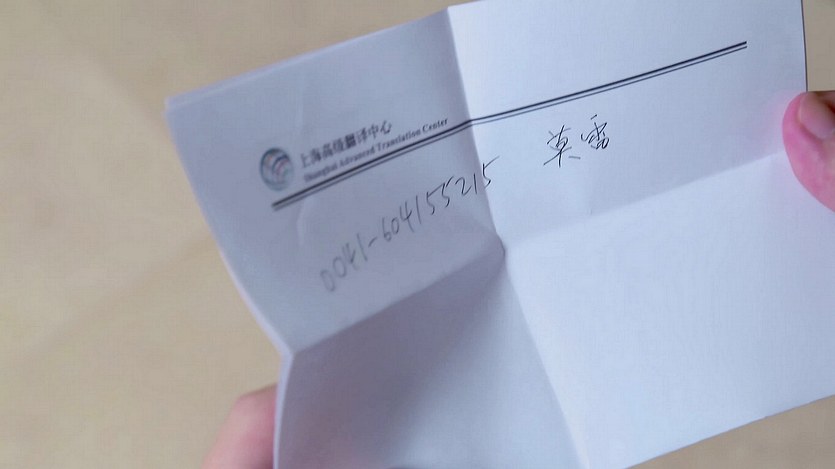 上海高级翻译中心
Shanghai Advanced Translation Center
0041-604155215 莫雷